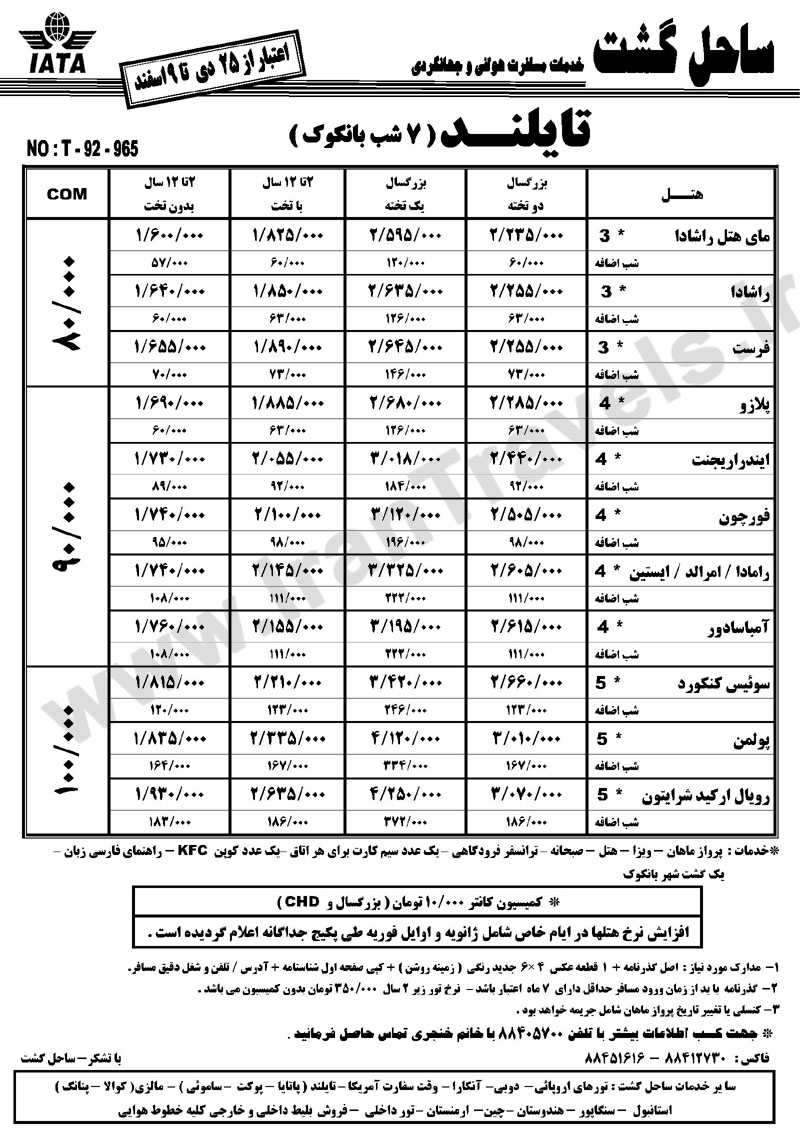 IATA
اعتبار از ۲۵ دی تا ۹ اسفند
ساحل گشت
خدمات مسافرت هوائی و جهانگردی
تایلند ( ۷ شب بانکوک )
NO : T - 92 - 965
هتل | بزرگسال دو تخته | بزرگسال یک تخته | ۲ تا ۱۲ سال با تخت | ۲ تا ۱۲ سال بدون تخت | COM
مای هتل راشادا * 3 | ۲/۲۳۵/۰۰۰ | ۲/۵۹۵/۰۰۰ | ۱/۸۲۵/۰۰۰ | ۱/۶۰۰/۰۰۰ | ۸۰/۰۰۰
شب اضافه | ۶۰/۰۰۰ | ۱۲۰/۰۰۰ | ۶۰/۰۰۰ | ۵۷/۰۰۰
راشادا * 3 | ۲/۲۵۵/۰۰۰ | ۲/۶۳۵/۰۰۰ | ۱/۸۵۰/۰۰۰ | ۱/۶۴۰/۰۰۰
شب اضافه | ۶۳/۰۰۰ | ۱۲۶/۰۰۰ | ۶۳/۰۰۰ | ۶۰/۰۰۰
فرست * 3 | ۲/۲۵۵/۰۰۰ | ۲/۶۴۵/۰۰۰ | ۱/۸۹۰/۰۰۰ | ۱/۶۵۵/۰۰۰
شب اضافه | ۷۳/۰۰۰ | ۱۴۶/۰۰۰ | ۷۳/۰۰۰ | ۷۰/۰۰۰
پلازو * 4 | ۲/۲۸۵/۰۰۰ | ۲/۶۸۰/۰۰۰ | ۱/۸۸۵/۰۰۰ | ۱/۶۹۰/۰۰۰ | ۹۰/۰۰۰
شب اضافه | ۶۳/۰۰۰ | ۱۲۶/۰۰۰ | ۶۳/۰۰۰ | ۶۰/۰۰۰
ایندراریجنت * 4 | ۲/۴۴۰/۰۰۰ | ۳/۰۱۸/۰۰۰ | ۲/۰۵۵/۰۰۰ | ۱/۷۳۰/۰۰۰
شب اضافه | ۹۲/۰۰۰ | ۱۸۴/۰۰۰ | ۹۲/۰۰۰ | ۸۹/۰۰۰
فورچون * 4 | ۲/۵۰۵/۰۰۰ | ۳/۱۲۰/۰۰۰ | ۲/۱۰۰/۰۰۰ | ۱/۷۴۰/۰۰۰
شب اضافه | ۹۸/۰۰۰ | ۱۹۶/۰۰۰ | ۹۸/۰۰۰ | ۹۵/۰۰۰
رامادا / امرالد / ایستین * 4 | ۲/۶۰۵/۰۰۰ | ۳/۳۲۵/۰۰۰ | ۲/۱۴۵/۰۰۰ | ۱/۷۴۰/۰۰۰
شب اضافه | ۱۱۱/۰۰۰ | ۲۲۲/۰۰۰ | ۱۱۱/۰۰۰ | ۱۰۸/۰۰۰
آمباسادور * 4 | ۲/۶۱۵/۰۰۰ | ۳/۱۹۵/۰۰۰ | ۲/۱۵۵/۰۰۰ | ۱/۷۶۰/۰۰۰
شب اضافه | ۱۱۱/۰۰۰ | ۲۲۲/۰۰۰ | ۱۱۱/۰۰۰ | ۱۰۸/۰۰۰
سوئیس کنکورد * 5 | ۲/۶۶۰/۰۰۰ | ۳/۴۲۰/۰۰۰ | ۲/۲۱۰/۰۰۰ | ۱/۸۱۵/۰۰۰ | ۱۰۰/۰۰۰
شب اضافه | ۱۲۳/۰۰۰ | ۲۴۶/۰۰۰ | ۱۲۳/۰۰۰ | ۱۲۰/۰۰۰
پولمن * 5 | ۳/۰۱۰/۰۰۰ | ۴/۱۲۰/۰۰۰ | ۲/۳۳۵/۰۰۰ | ۱/۸۳۵/۰۰۰
شب اضافه | ۱۶۷/۰۰۰ | ۳۳۴/۰۰۰ | ۱۶۷/۰۰۰ | ۱۶۴/۰۰۰
رویال ارکید شرایتون * 5 | ۳/۰۷۰/۰۰۰ | ۴/۲۵۰/۰۰۰ | ۲/۶۳۵/۰۰۰ | ۱/۹۳۰/۰۰۰
شب اضافه | ۱۸۶/۰۰۰ | ۳۷۲/۰۰۰ | ۱۸۶/۰۰۰ | ۱۸۳/۰۰۰
www.IranTravels.ir
*خدمات : پرواز ماهان – ویزا – هتل – صبحانه – ترانسفر فرودگاهی – یک عدد سیم کارت برای هر اتاق – یک عدد کوپن KFC – راهنمای فارسی زبان –
یک گشت شهر بانکوک
* کمیسیون کانتر ۱۰/۰۰۰ تومان ( بزرگسال و CHD )
افزایش نرخ هتلها در ایام خاص شامل ژانویه و اوایل فوریه طی پکیج جداگانه اعلام گردیده است .
۱– مدارک مورد نیاز : اصل گذرنامه + ۱ قطعه عکس ۴ ×۶ جدید رنگی ( زمینه روشن ) + کپی صفحه اول شناسنامه + آدرس / تلفن و شغل دقیق مسافر.
۲– گذرنامه باید از زمان ورود مسافر حداقل دارای ۷ ماه اعتبار باشد – نرخ تور زیر ۲ سال ۳۵۰/۰۰۰ تومان بدون کمیسیون می باشد .
۳– کنسلی یا تغییر تاریخ پرواز ماهان شامل جریمه خواهد بود .
* جهت کسب اطلاعات بیشتر با تلفن ۸۸۴۰۵۷۰۰ با خانم خنجری تماس حاصل فرمانید .
فاکس : ۸۸۴۱۲۷۳۰ – ۸۸۴۵۱۶۱۶
با تشکر – ساحل گشت
سایر خدمات ساحل گشت : تورهای اروپائی – دوبی – آنکارا – وقت سفارت آمریکا – تایلند ( پاتایا – پوکت – ساموئی ) – مالزی( کوالا – پنانگ )
استانبول – سنگاپور – هندوستان – چین – ارمنستان – تور داخلی – فروش بلیط داخلی و خارجی کلیه خطوط هوایی